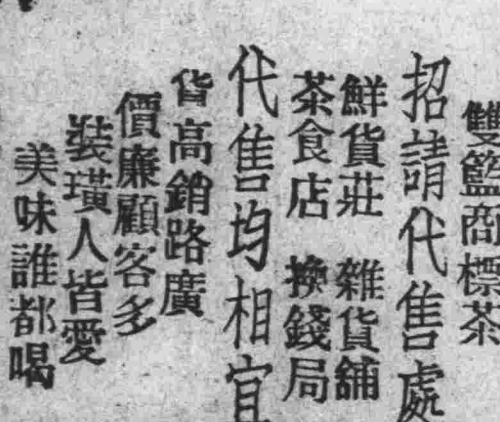 雙籃商標茶
招請代售處
鮮貨莊 雜貨舖
茶食店 換錢局
代售均相宜
貨高銷路廣
價廉顧客多
裝璜人皆愛
美味誰都喝